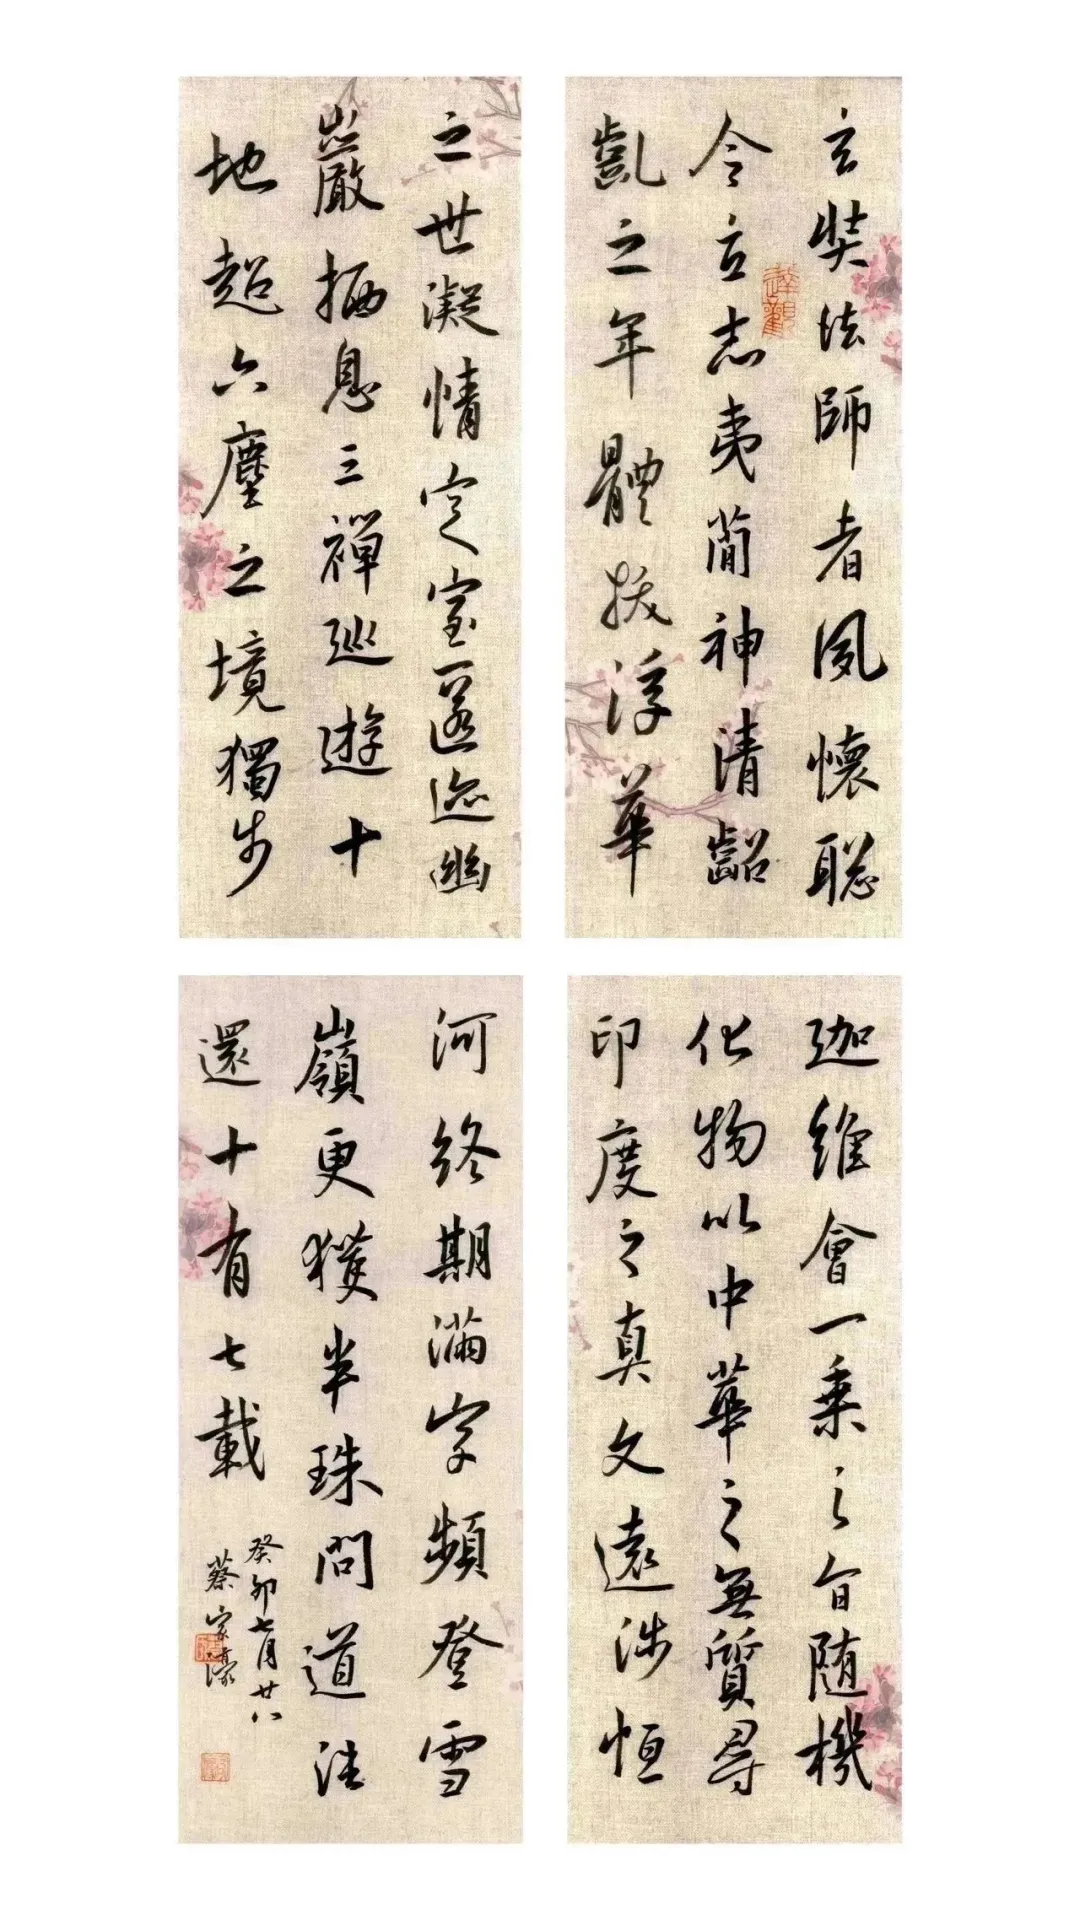 玄奘法師者夙懷聡
令立志夷蕳神清齠
齓之年體拔浮華
之世凝情定室匿迹幽
巖栖息三禪巡遊十
地超六塵之境獨步
迦維會一乗之旨随機
化物以中華之無質尋
印度之真文遠涉恒
河終期滿字頻登雪
嶺更獲半珠問道法
還十有七載
癸卯七月廿八
蔡家濠
達觀